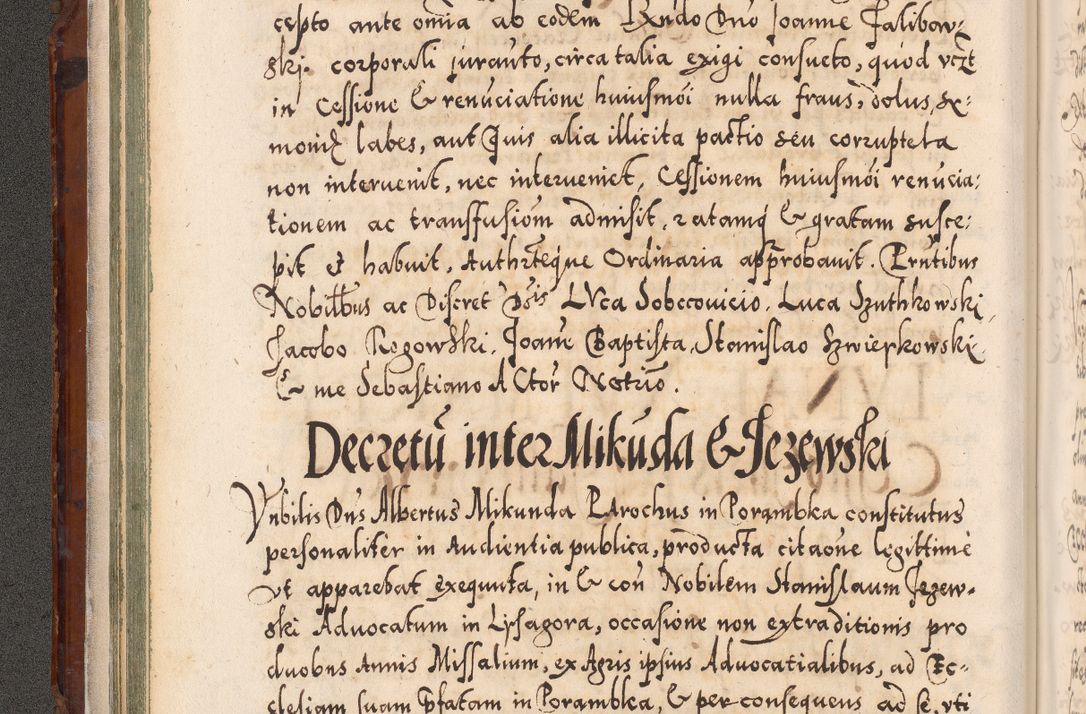 cepto ante omia ab eodem Rndo Dno Joanne Falibow-
ski. corporali jurauto, circa talia exigi consueto, quod vczt
in Cessione & renuciatione huiusmoi nulla fraus, dolus,
moniæ labes, aut Quis alia illicita pactio seu corruptela
non interuenit, nec interueniet, Cessionem huiusmoi renucia:
tionem ac transfusiom admisit, ratamq & gratam susce:
pit et habuit, Authrteque Ordinaria approbauit. Prntibus
Nobilbus ac Discret Dnis Luca Sobccouicio, Luca Szuthkowski,
Jacobo Rogowski, Joane Baptista, Stanislao Szwierkowski
& me Sebastiano A Ctor Notrio.
Decretu inter Mikuda & Jezewski
Vnbilis Dns Albertus Mikunda Parochus in Porambka constitutus
personaliter in Audientia publica, producta citaone legittime
vt apparebat exequuta, in & con Nobilem Stanislaum Jezew-
ski Aduocatum in Lysagora, occasione non extraditionis pro
duobus Annis Missalium, ex Agris ipsius Aduocatialibus, ad Ec-
clesiam suam Pfatam in Porambka, & per consequens ad se, vti